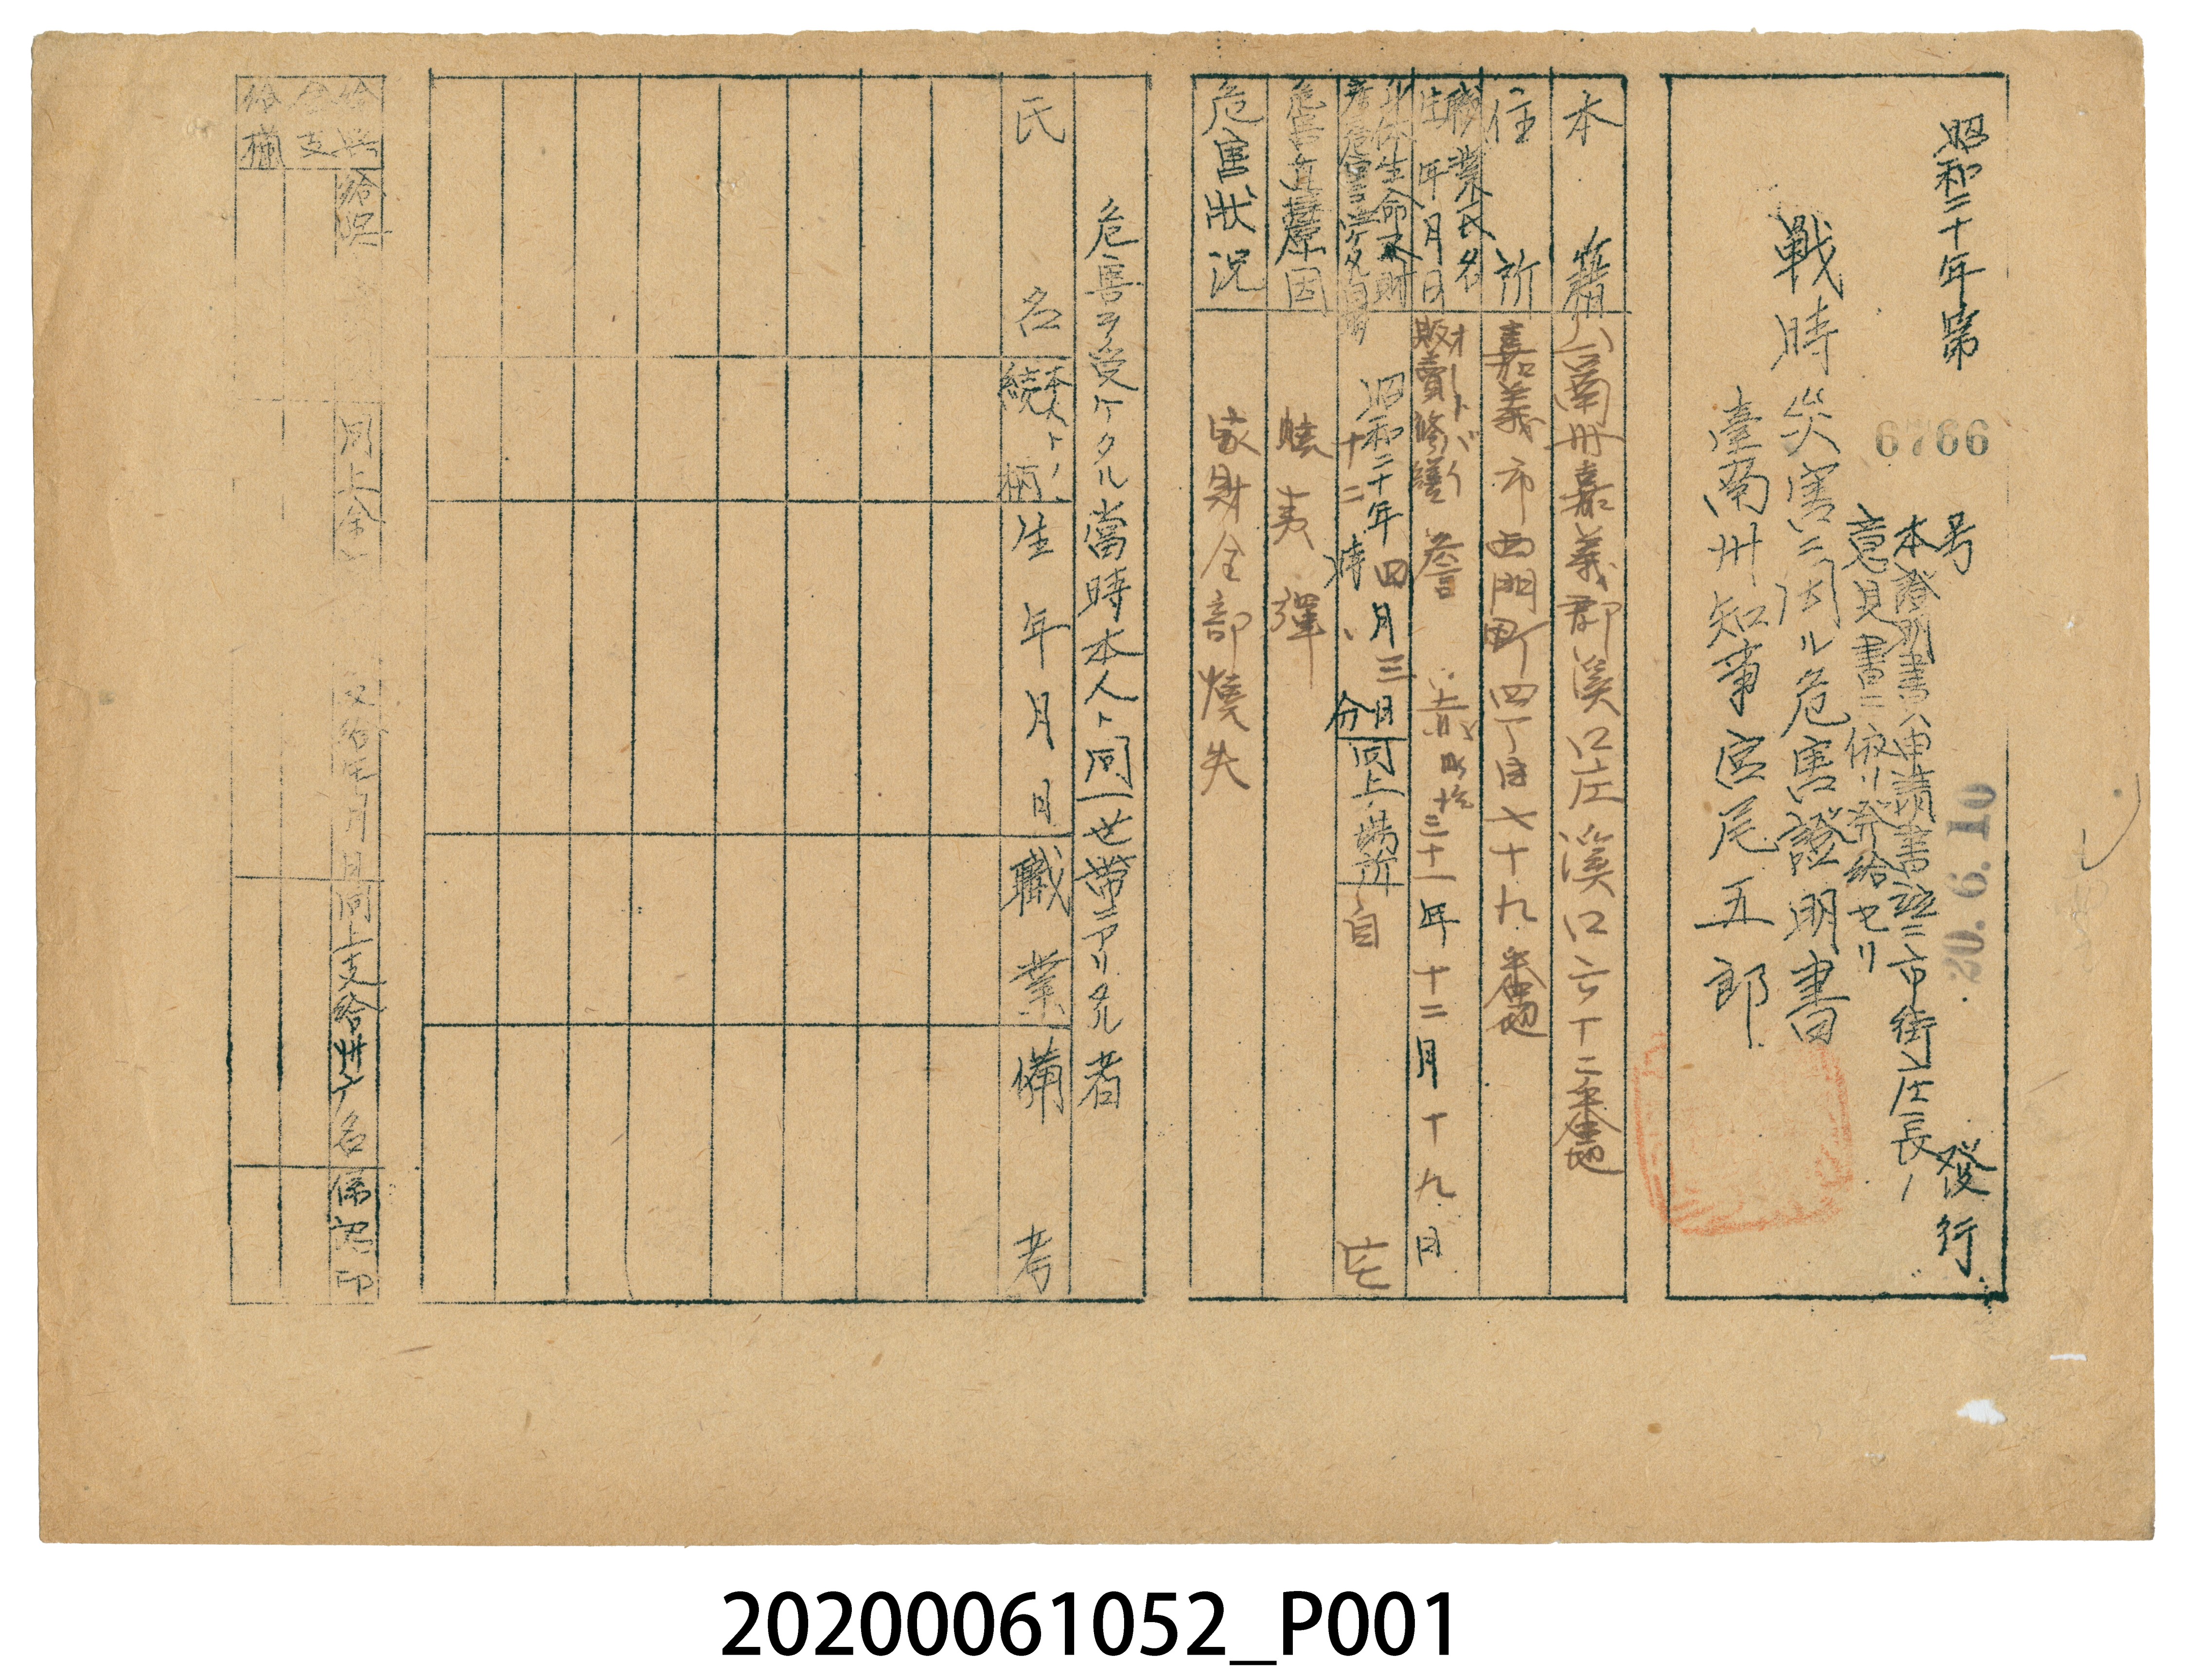 昭和二十年第 6766 号 發行
20.6.10
本證明書ハ申請書竝ニ市街庄長ノ
意見書ニ依リ発給セリ
戰時災害ニ因ル危害證明書
臺南州知事宮尾五郎
本籍 台南州嘉義郡溪口庄溪口六百十二番地
住所 嘉義市西門町四丁目七十九番地
職業氏名 オートバイ
生年月日 販賣修繕 詹 明治三十一年十二月十九日
身体生命又ハ財
産危害ヲ受ケタル日時 昭和二十年四月三日
十二時 分 同上場所 自宅
危害直接原因 燒夷彈
危害狀況 家財全部燒失
危害ヲ受ケタル當時本人ト同一世帶ニアリタル者
氏名 本人トノ續柄 生年月日 職業 備考
給與
金支給
種
同上金
支給年月日
同上支給州廳名
係官印
20200061052_P001